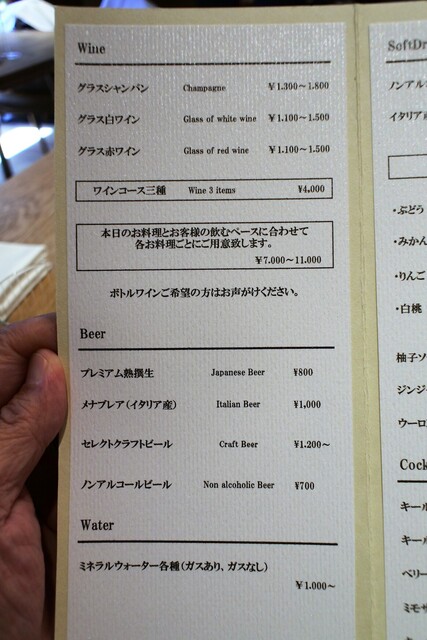 Wine
グラスシャンパン Champagne ¥1.300～1.800
グラス白ワイン Glass of white wine ¥1.100～1.500
グラス赤ワイン Glass of red wine ¥1.100～1.500
ワインコース三種 Wine 3 items ¥4,000
本日のお料理とお客様の飲むペースに合わせて
各お料理ごとにご用意致します。
¥7.000～11.000
ボトルワインご希望の方はお声がけください。
Beer
プレミアム熟撰生 Japanese Beer ¥800
メナブレア(イタリア産) Italian Beer ¥1,000
セレクトクラフトビール Craft Beer ¥1.200～
ノンアルコールビール Non alcoholic Beer ¥700
Water
ミネラルウォーター各種(ガスあり、ガスなし)
¥1.000～
SoftDr
ノンアル
イタリア産
・ぶどう
・みかん
・りんご
・白桃
柚子ソ
ジンジ
ウーロ
Cock
キール
キール
ベリー
ミモザ